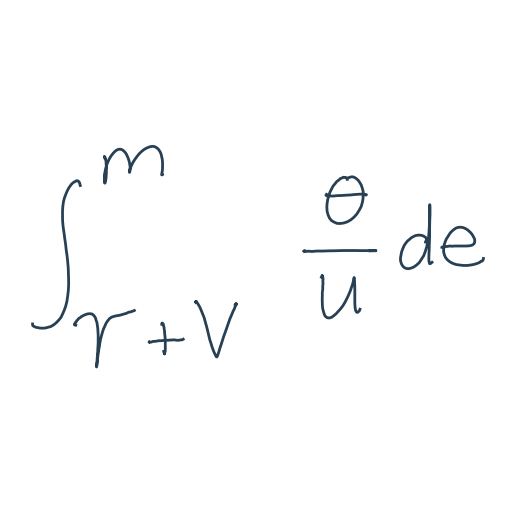 \int_{\gamma + V}^{m} \frac{\theta}{u} de